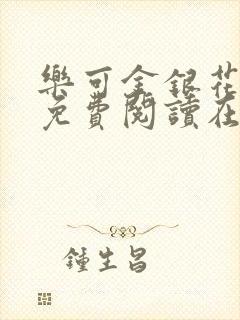 樂可金銀花
免費閱讀在
鍾生昌